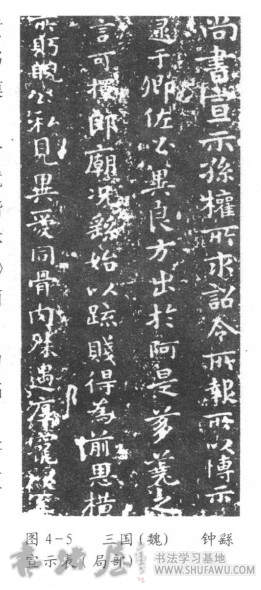 尚書宣示孫權所求詔令所報所以博示
逮于卿佐必異良方出於阿是芻蕘之
言可擇郎廟況繇始以疏賤得為前恩橫
所眄睨公私見異愛同骨肉殊遇厚寵以至
图 4-5 三国(魏) 钟繇
宣示表(局部)
书法屋
书法学习基地
WWW.SHUFAWU.COM